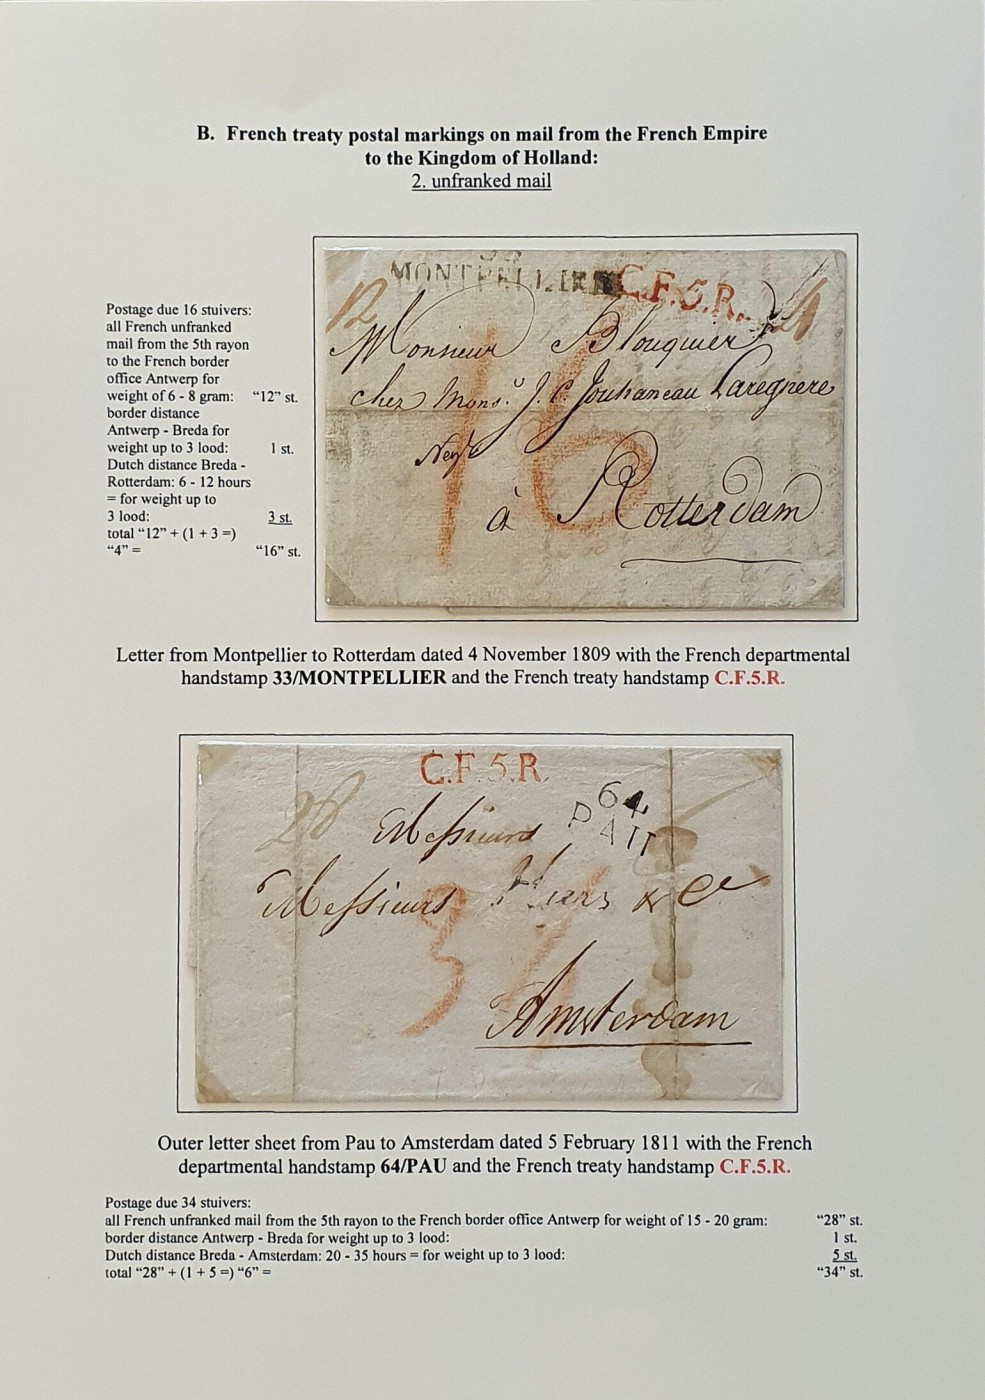 B. French treaty postal markings on mail from the French Empire
to the Kingdom of Holland:
2. unfranked mail
Postage due 16 stuivers:
all French unfranked
mail from the 5th rayon
to the French border
office Antwerp for
weight of 6 - 8 gram: “12” st.
border distance
Antwerp - Breda for
weight up to 3 lood: 1 st.
Dutch distance Breda -
Rotterdam: 6 - 12 hours
= for weight up to
3 lood: 3 st.
total “12” + (1 + 3 =)
“4” = “16” st.
33
MONTPELLIER
C.F.5.R.
12
4
16
Monsieur Blouquier
chez Mons.r J. C. Jouhaneau Laregnere
à Rotterdam
Letter from Montpellier to Rotterdam dated 4 November 1809 with the French departmental
handstamp 33/MONTPELLIER and the French treaty handstamp C.F.5.R.
C.F.5.R.
64
PAU
28
Messieurs
Messieurs & Ce
34
Amsterdam
Outer letter sheet from Pau to Amsterdam dated 5 February 1811 with the French
departmental handstamp 64/PAU and the French treaty handstamp C.F.5.R.
Postage due 34 stuivers:
all French unfranked mail from the 5th rayon to the French border office Antwerp for weight of 15 - 20 gram: “28” st.
border distance Antwerp - Breda for weight up to 3 lood: 1 st.
Dutch distance Breda - Amsterdam: 20 - 35 hours = for weight up to 3 lood: 5 st.
total “28” + (1 + 5 =) “6” = “34” st.